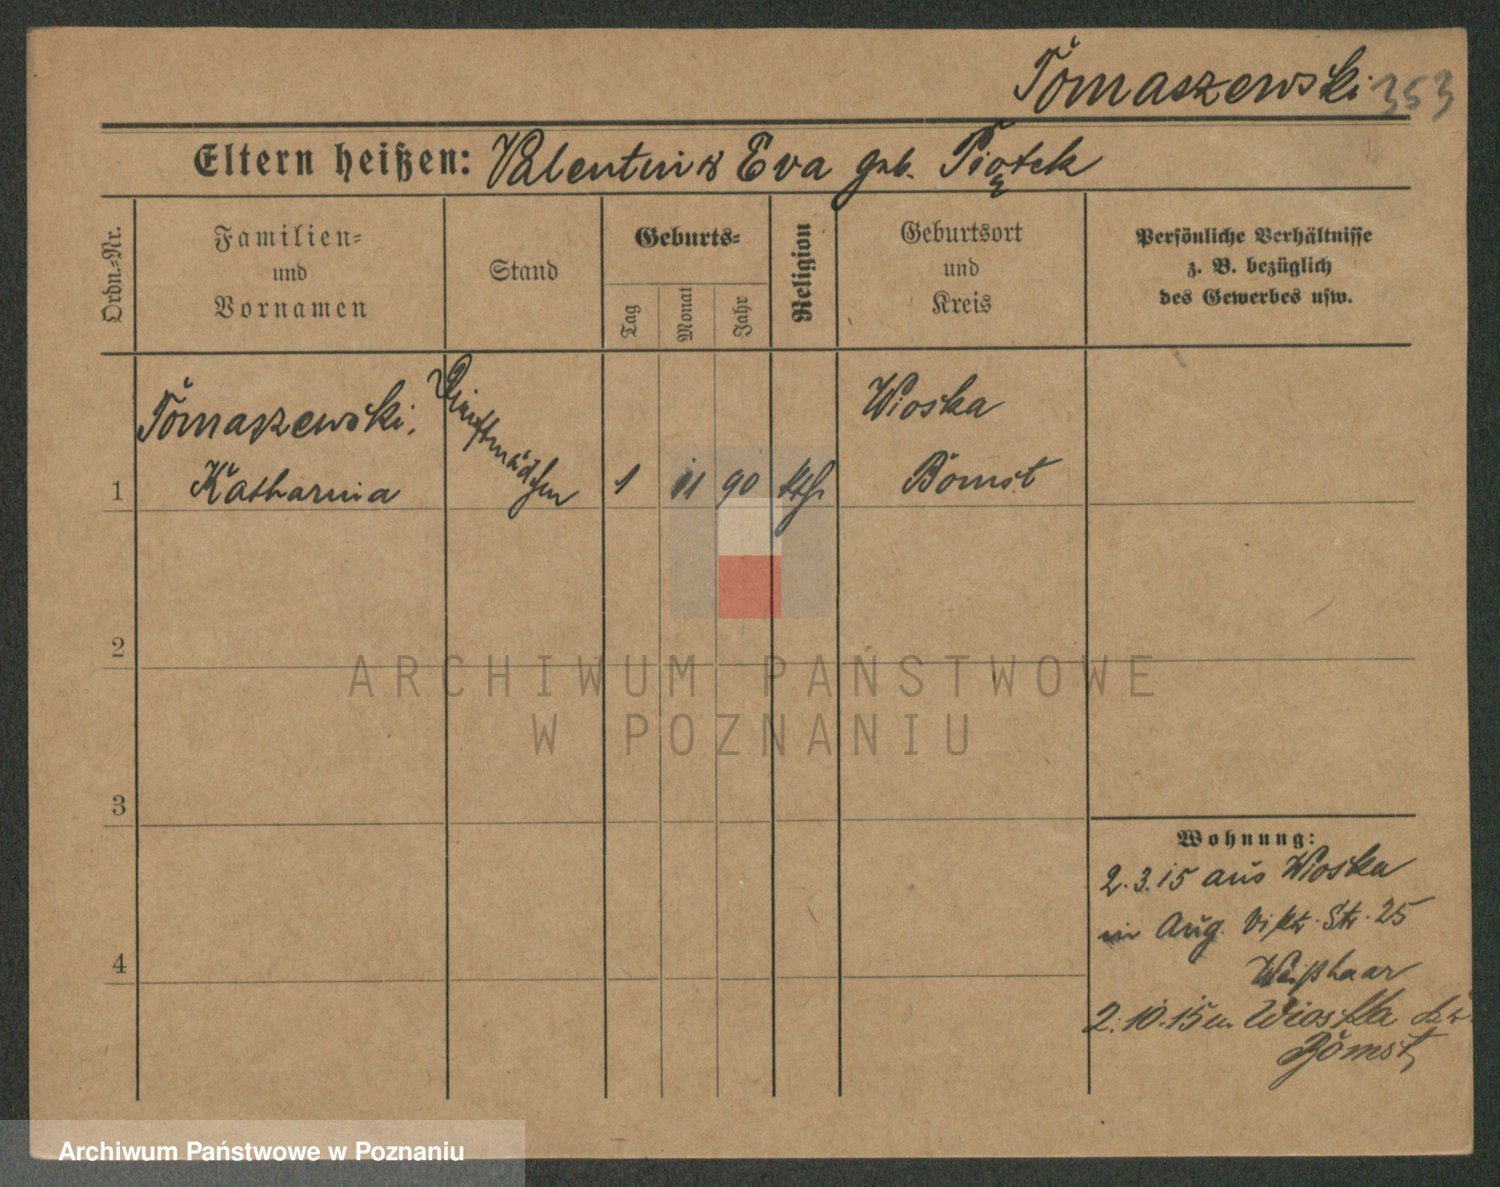 Tomaszewski 353
Eltern heißen: Valentin & Eva geb. Piątek
Ordn.-Nr.
Familien-
und
Vornamen
Stand
Geburts-
Tag
Monat
Jahr
Religion
Geburtsort
und
Kreis
Persönliche Verhältnisse
z. B. bezüglich
des Gewerbes usw.
1
Tomaszewski,
Katharina
Dienstmädchen
1 11 90 kth.
Wioska
Bomst
2
3
4
Wohnung:
2.3.15 aus Wioska
in Aug. Vikt. Str. 25
Weißhaar
2.10.15 n. Wioska Kr.
Bomst
ARCHIWUM PAŃSTWOWE
W POZNANIU
Archiwum Państwowe w Poznaniu